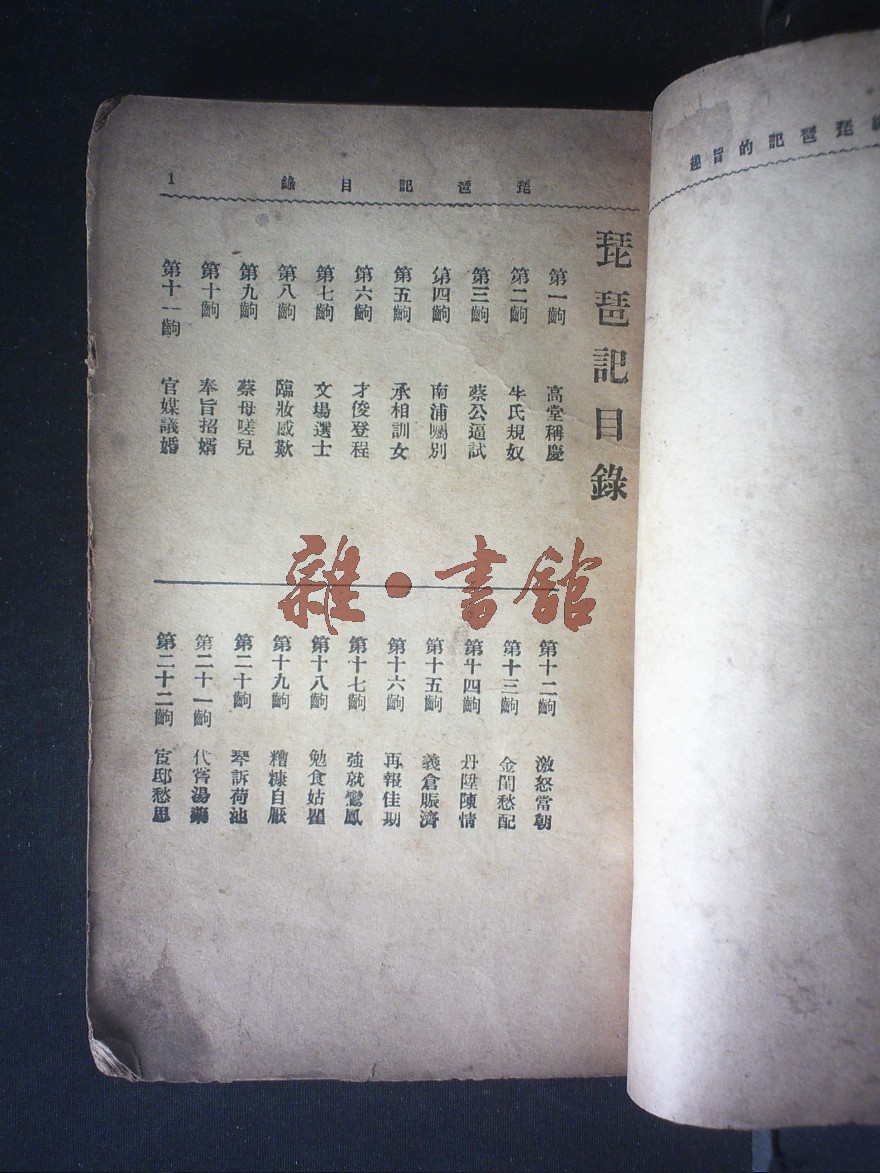 琵琶記的旨趣
琵琶記目錄 1
琵琶記目錄
第一齣 高堂稱慶
第二齣 牛氏規奴
第三齣 蔡公逼試
第四齣 南浦囑別
第五齣 承相訓女
第六齣 才俊登程
第七齣 文場選士
第八齣 臨妝感歎
第九齣 蔡母嗟兒
第十齣 奉旨招婿
第十一齣 官媒議婚
第十二齣 激怒當朝
第十三齣 金閨愁配
第十四齣 丹陞陳情
第十五齣 義倉賑濟
第十六齣 再報佳期
第十七齣 強就鸞鳳
第十八齣 勉食姑
第十九齣 糟糠自厭
第二十齣 琴訴荷池
第二十一齣 代嘗湯藥
第二十二齣 宦邸愁思
雜·書館